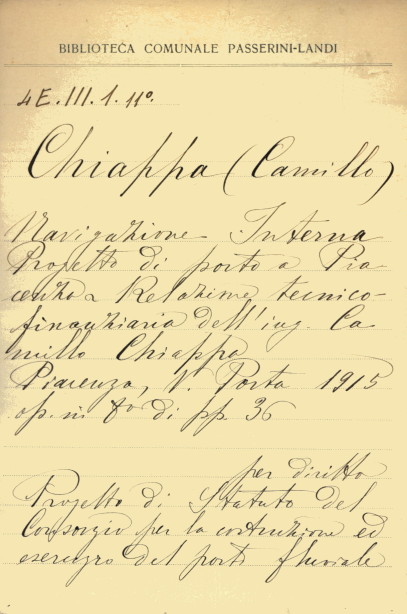 BIBLIOTECA COMUNALE PASSERINI-LANDI
4E.III.1.11º.
Chiappa (Camillo)
Navigazione Interna
Progetto di porto a Pia-
cenza Relazione tecnico-
finanziaria dell'ing. Ca-
millo Chiappa
Piacenza, V. Porta 1915
op. in 8º di pp. 36
per diritto
Progetto di Statuto del
Consorzio per la costruzione ed
esercizio del porto fluviale